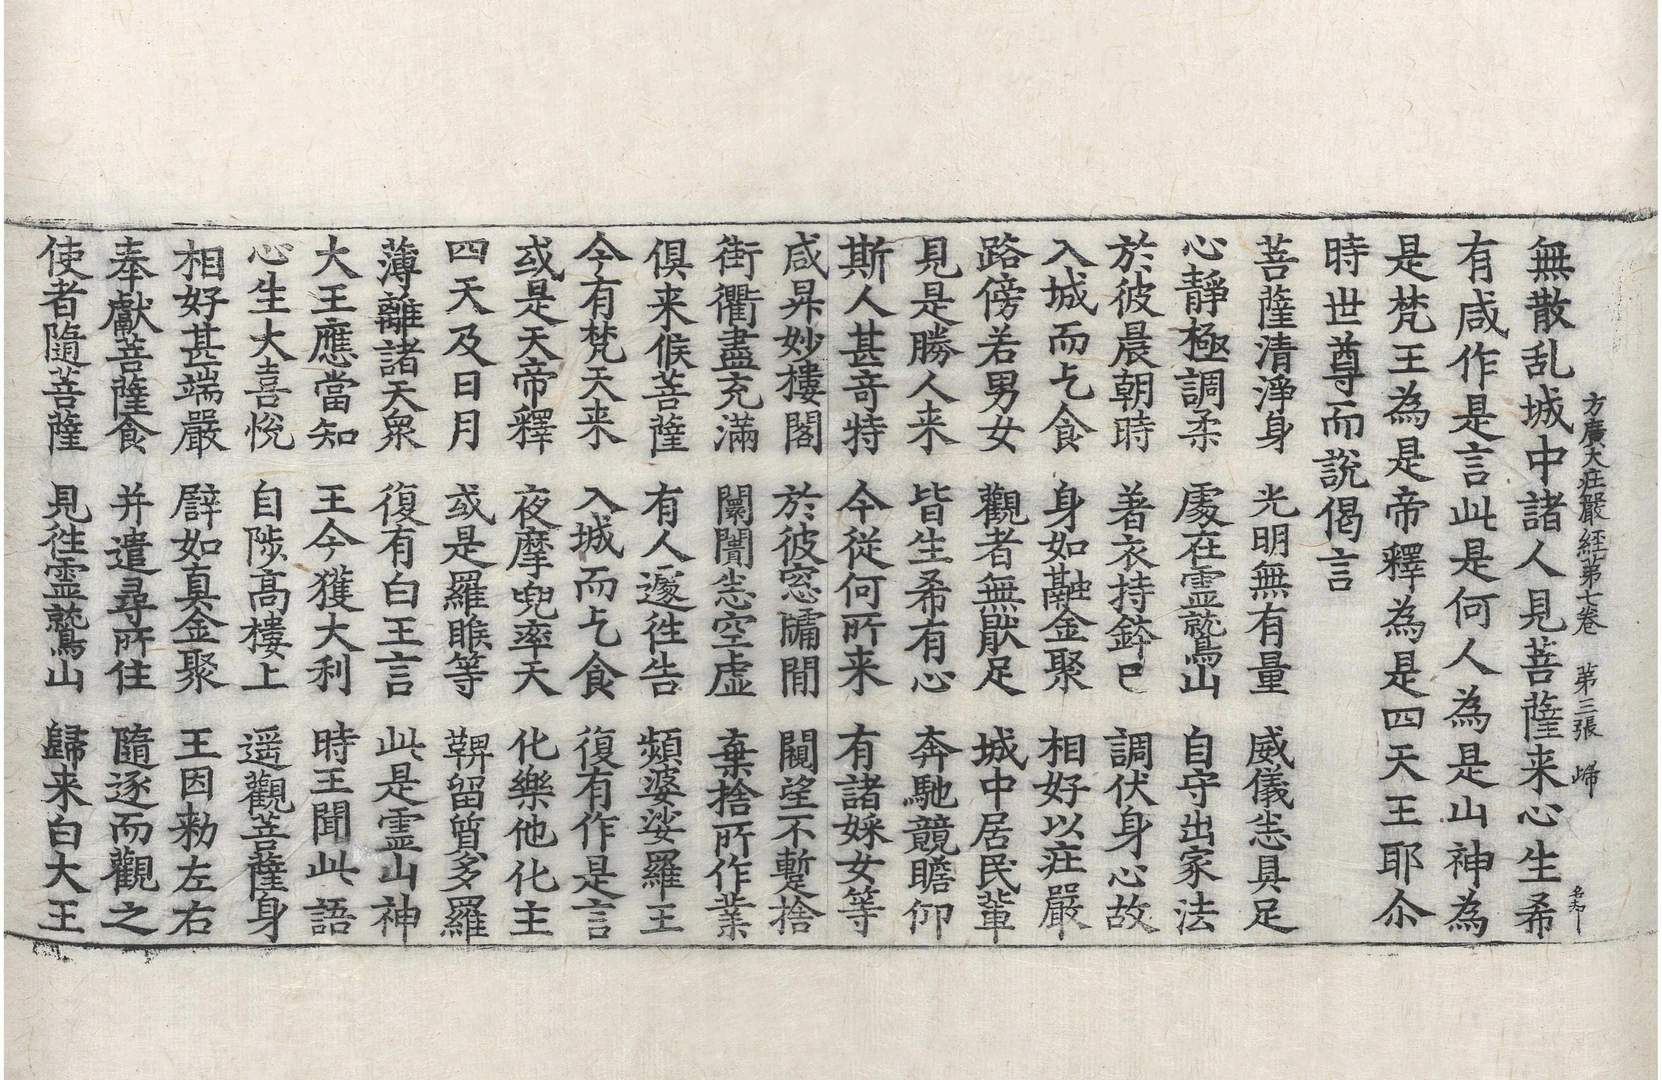 方廣大庄嚴經第七卷　第三張　歸
無散乱城中諸人見菩薩来心生希
有咸作是言此是何人為是山神為
是梵王為是帝釋為是四天王耶尒
時世尊而說偈言
菩薩清淨身　光明無有量　威儀悉具足
心靜極調柔　處在靈鷲山　自守出家法
於彼晨朝時　著衣持鉢已　調伏身心故
入城而乞食　身如融金聚　相好以庄嚴
路傍若男女　觀者無猒足　城中居民輩
見是勝人来　皆生希有心　奔馳競瞻仰
斯人甚竒特　今從何所来　有諸婇女等
咸昇妙樓閣　於彼窓牖間　闚望不暫捨
街衢盡充滿　闤闠悉空虛　棄捨所作業
俱来候菩薩　有人遽往告　頻婆娑羅王
今有梵天来　入城而乞食　復有作是言
或是天帝釋　夜摩兜率天　化樂他化主
四天及日月　或是羅睺等　鞞留質多羅
薄離諸天衆　復有白王言　此是靈山神
大王應當知　王今獲大利　時王聞此語
心生大喜悅　自陟高樓上　遥觀菩薩身
相好甚端嚴　譬如真金聚　王因勑左右
奉獻菩薩食　并遣尋所住　隨逐而觀之
使者隨菩薩　見往靈鷲山　歸来白大王